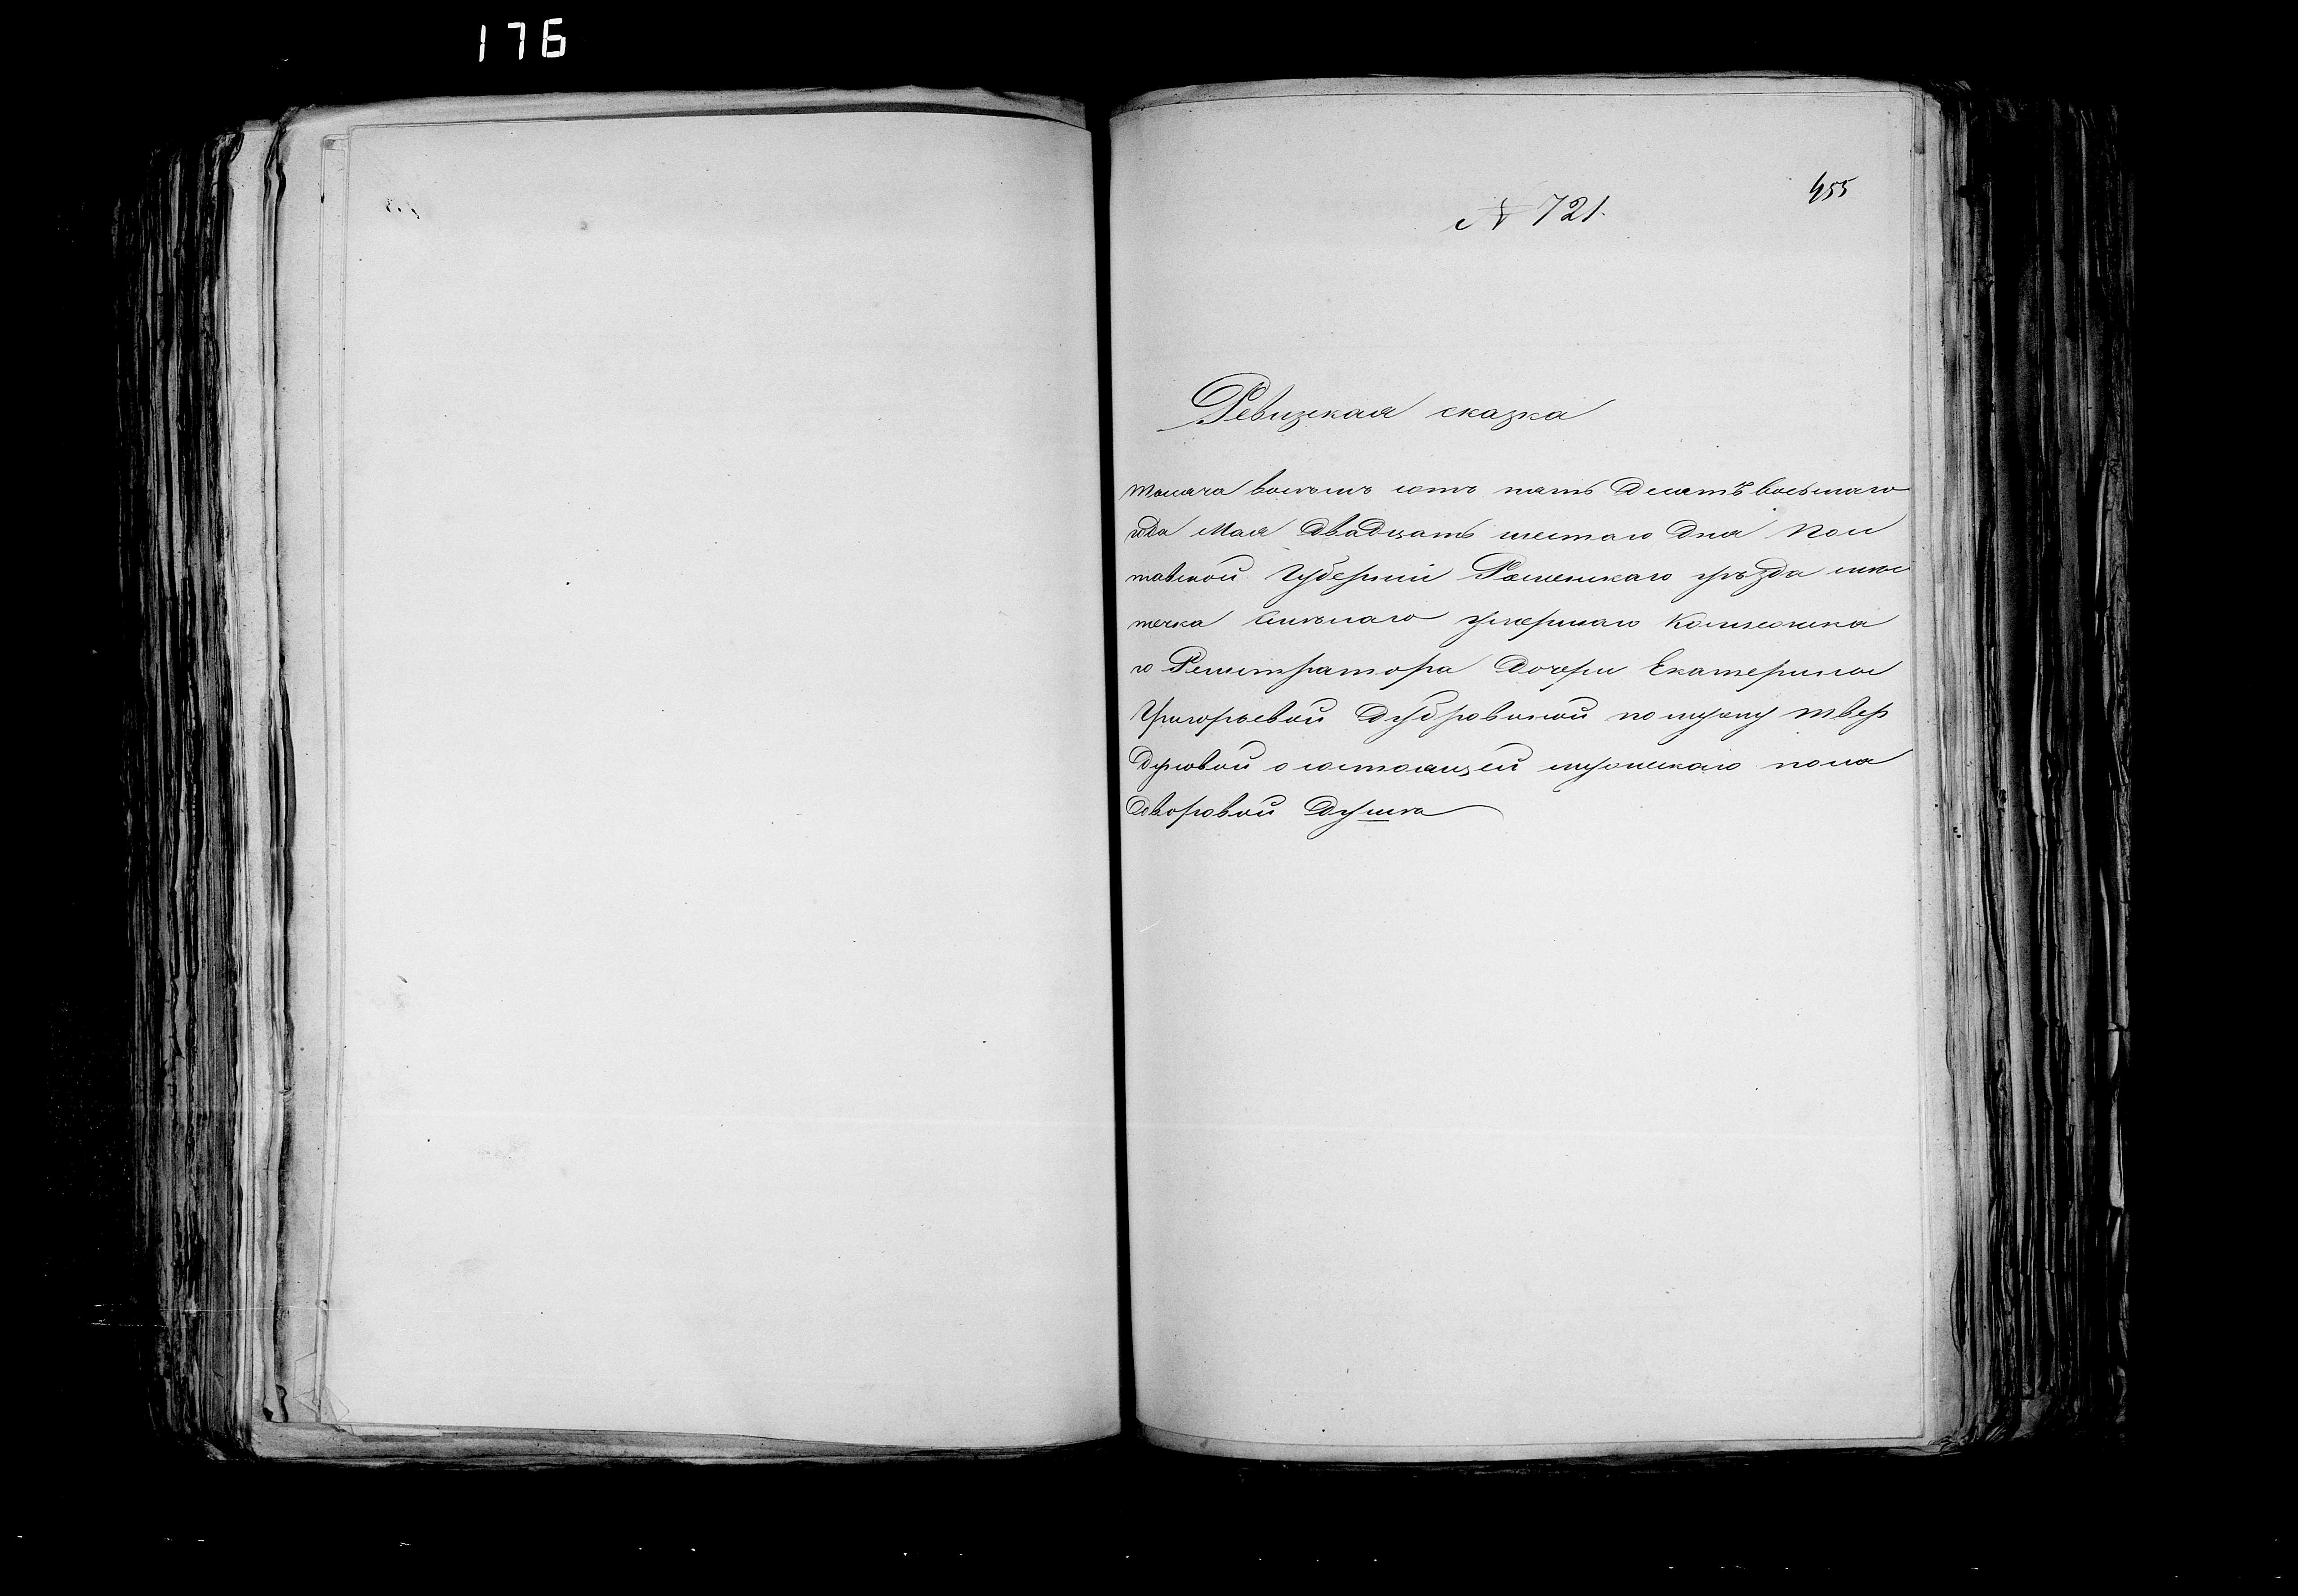 176
455
№ 721.
Ревизская сказка
тысяча восемь сотъ пять десятъ восьмаго
года Мая двадцать шестаго дня Пол
тавской Губерніи Роменскаго уѣзда мѣс
течка Смѣлаго умершаго Коллежска
го Регистратора дочери Екатерины
Григорьевой Дубровиной по мужу Твер
духовой о состоящей мужескаго пола
дворовой душѣ